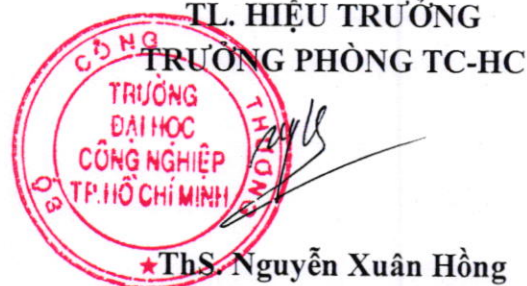 TL. HIỆU TRƯỞNG
TRƯỞNG PHÒNG TC-HC
BỘ CÔNG THƯƠNG
TRƯỜNG
ĐẠI HỌC
CÔNG NGHIỆP
TP.HỒ CHÍ MINH
ThS. Nguyễn Xuân Hồng